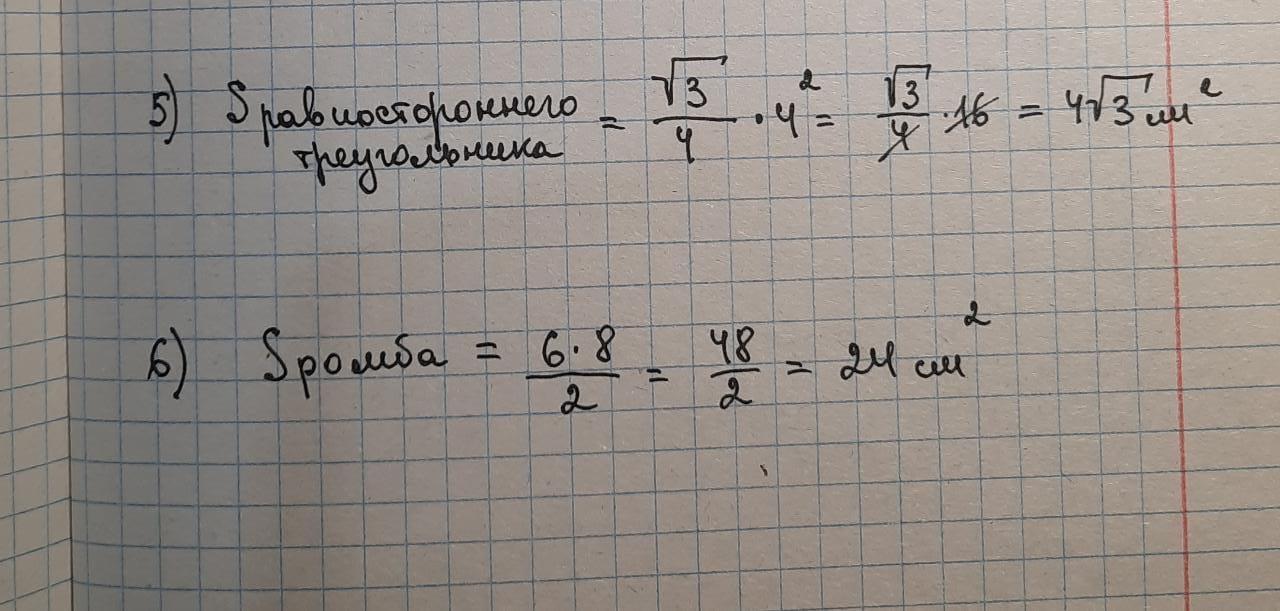 5) S равностороннего треугольника = √3/4 · 4² = √3/4 · 16 = 4√3 см²
6) S ромба = 6·8/2 = 48/2 = 24 см²